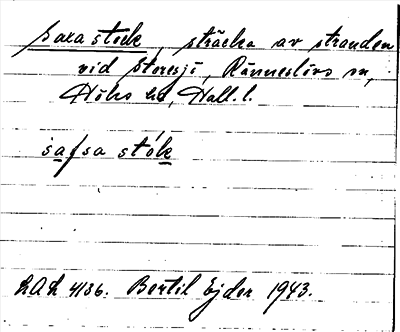 saxastock, sträcka av stranden
vid Storesjö, Ränneslövs sn,
Höks hd, Hall. l.
safsa stók
LAL 4186. Bertil Ejder 1943.